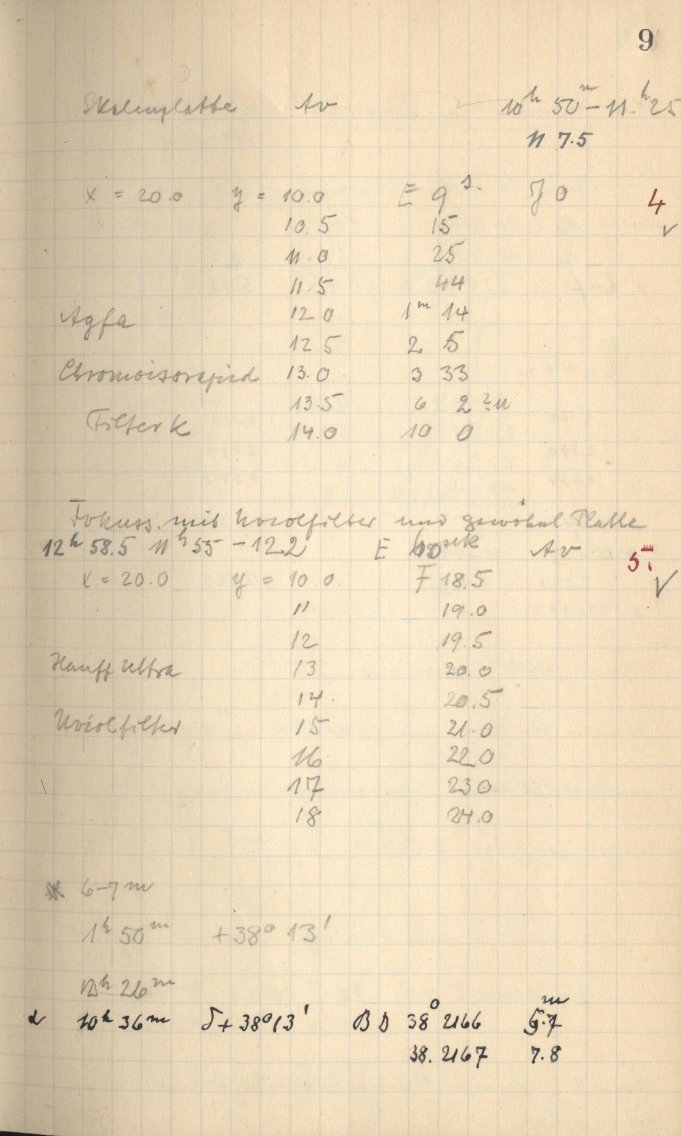 9
Skalenplatte Av 10ʰ 50ᵐ – 11.ʰ 25
11 7.5
x = 20.0 y = 10.0 E 9ˢ· 0 4
10.5 15
11.0 25
11.5 44
Agfa 12 0 1ᵐ 14
12 5 2 5
Chromoisorapid 13.0 3 33
13.5 6 2
Filter K 14.0 10 0
Fokuss. mit Uviolfilter und gewölbt Platte
12ʰ 58.5 11ʰ 55 – 12.2 E Av 5
x = 20.0 y = 10 0 F 18.5
11 19.0
12 19.5
Hauff Ultra 13 20.0
14. 20.5
Uviolfilter 15 21.0
16 22.0
17 23 0
18 24.0
6–7 m
1ʰ 50ᵐ +38° 13'
12ʰ 26ᵐ
α 10ʰ 36ᵐ δ +38° 13' B D 38° 2166 5.7ᵐ
38. 2167 7.8